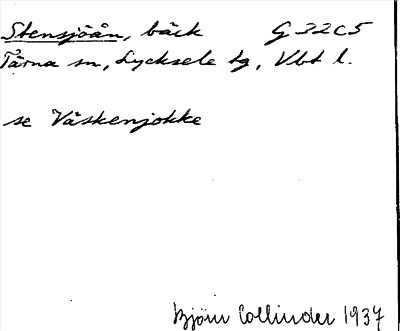 Stensjöån, bäck G 32 C 5
Tärna sn, Lycksele tg, Vbt l.
se Våskenjokke
Björn Collinder 1937